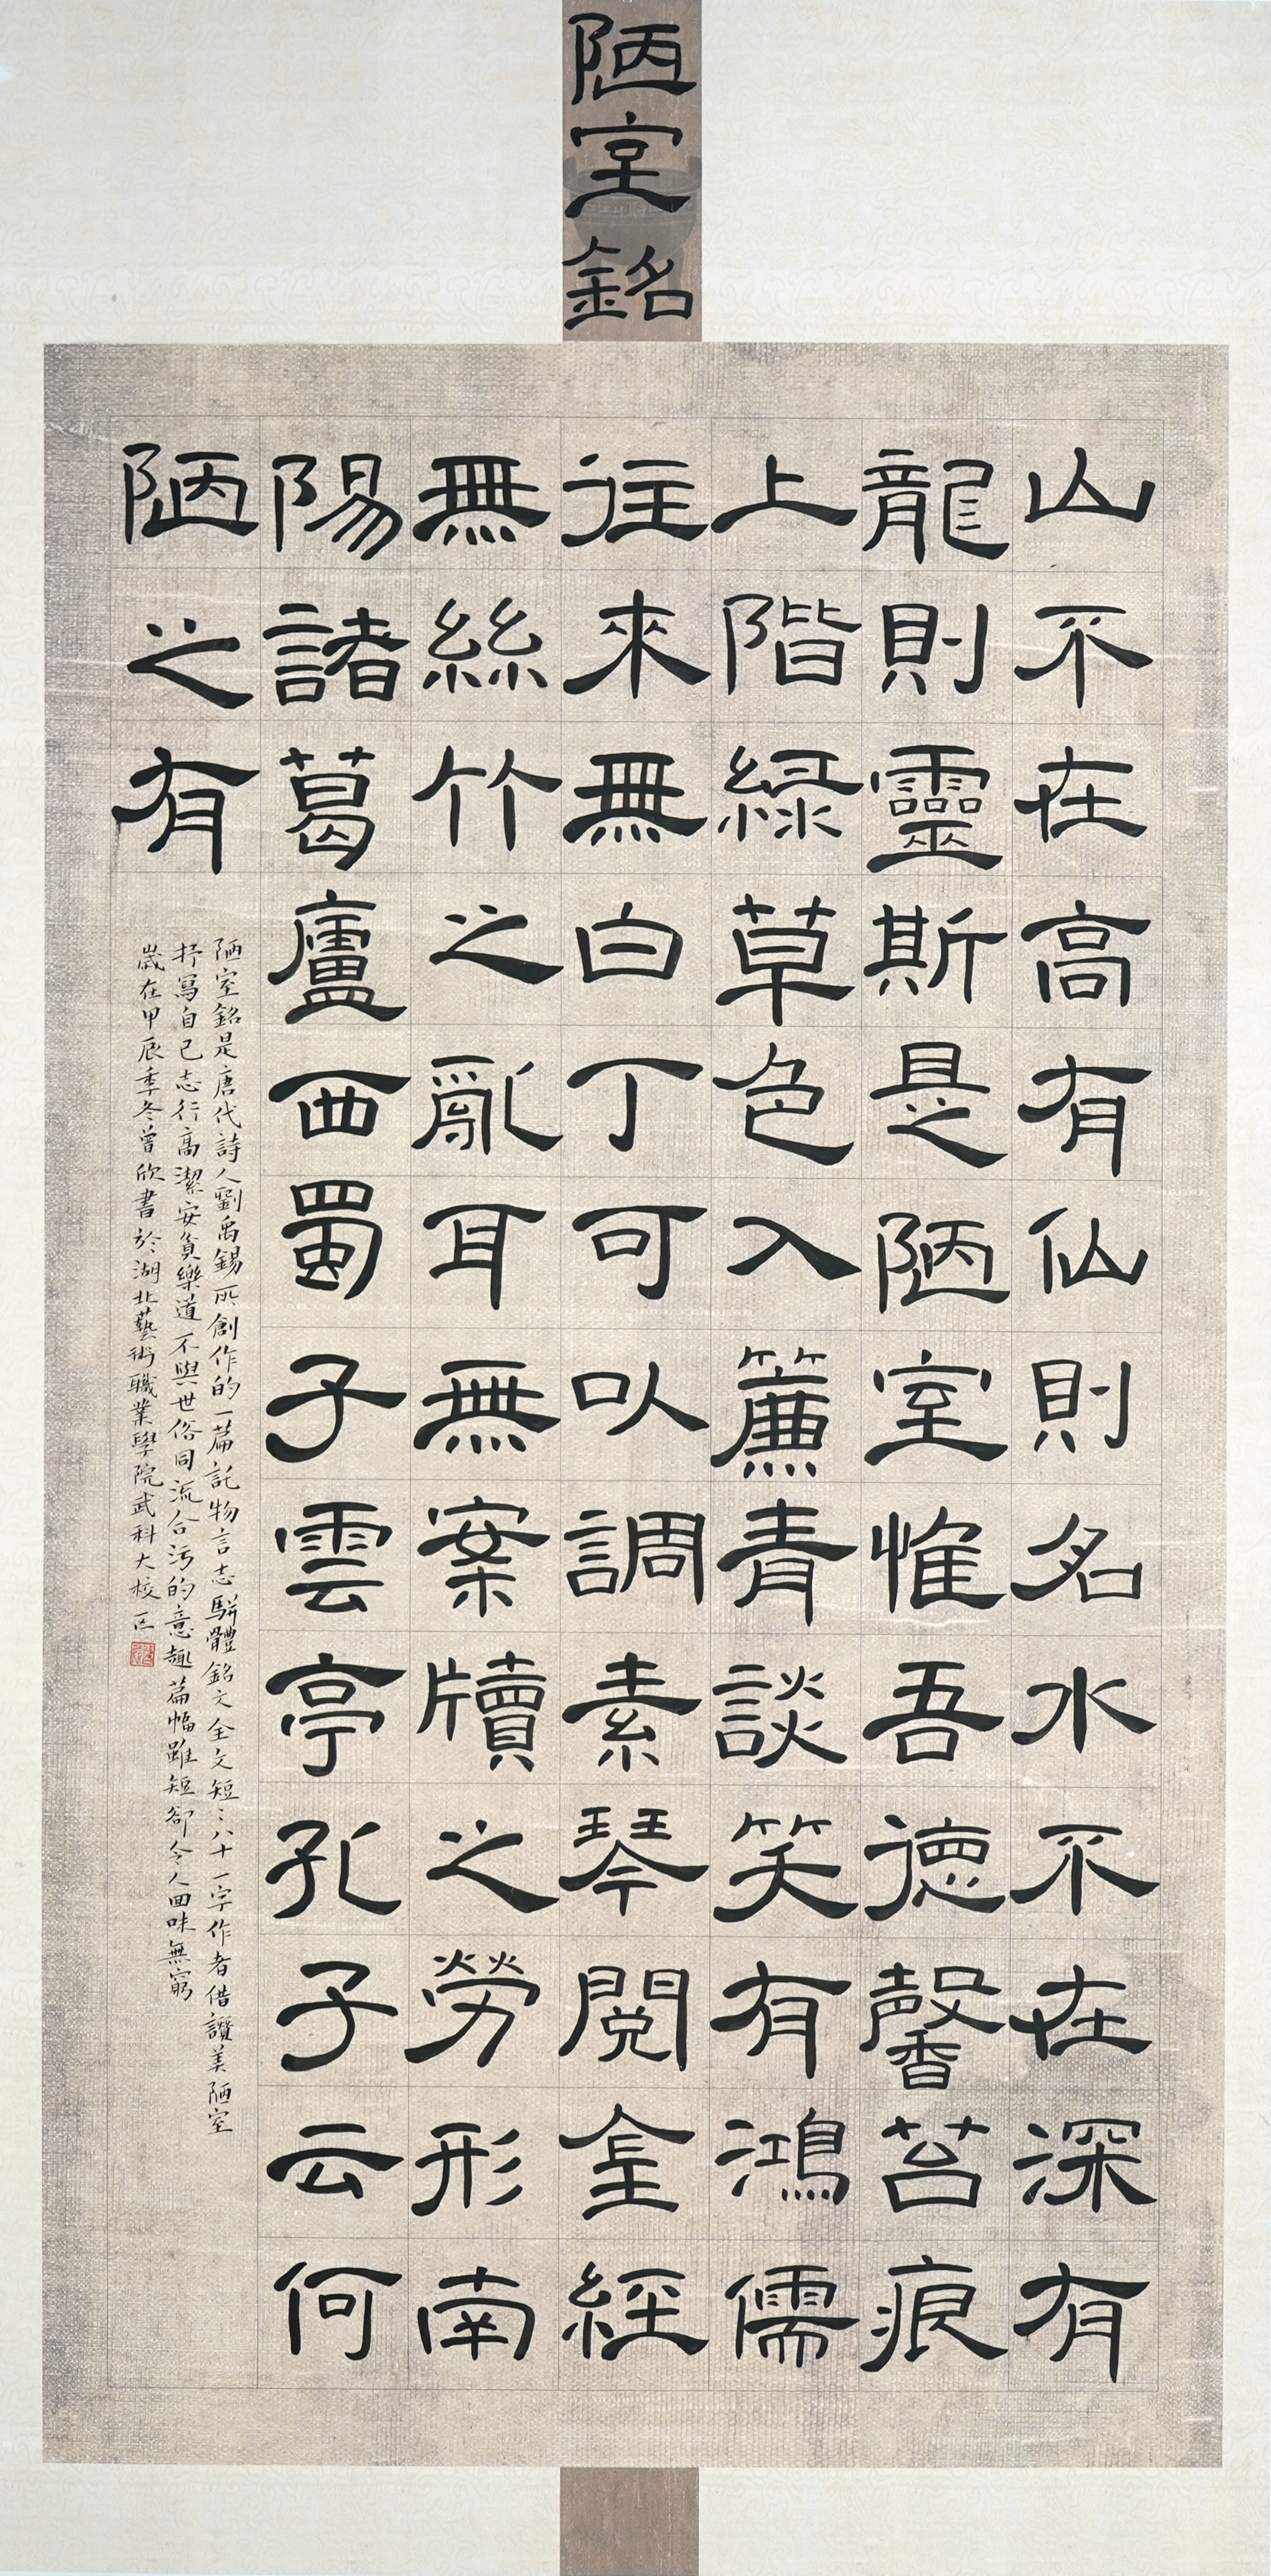 陋室銘
山不在高有仙則名水不在深有
龍則靈斯是陋室惟吾德馨苔痕
上階緑草色入簾青談笑有鴻儒
往來無白丁可以調素琴閱金經
無絲竹之亂耳無案牘之勞形南
陽諸葛廬西蜀子雲亭孔子云何
陋之有
陋室銘是唐代詩人劉禹錫所創作的一篇託物言志駢體銘文全文短短八十一字作者借讚美陋室
抒寫自己志行高潔安貧樂道不與世俗同流合污的意趣篇幅雖短卻令人回味無窮
歲在甲辰季冬曾欣書於湖北藝術職業學院武科大校区